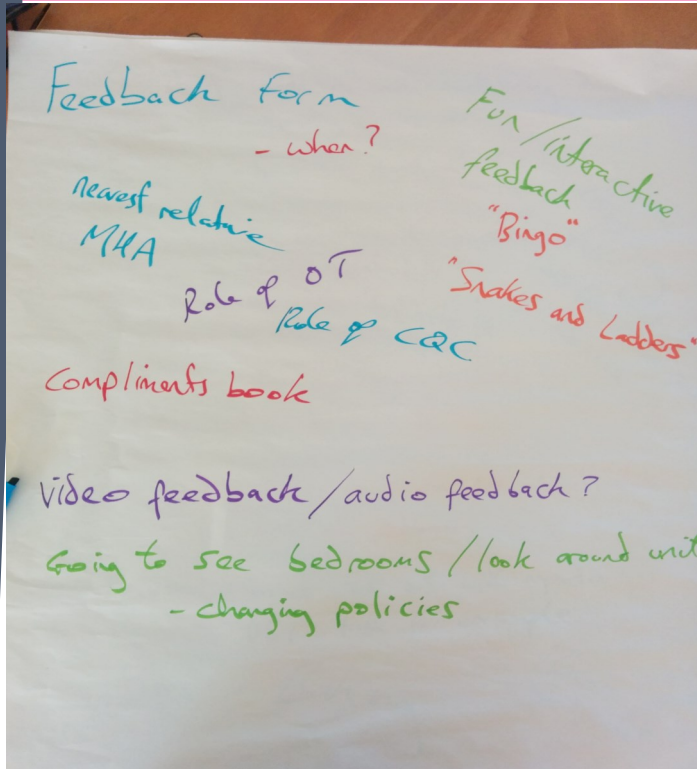 Feedback form
- when?
Fun/interactive
feedback
"Bingo"
"Snakes and Ladders"
nearest relative
MHA
Role of OT
Role of CQC
Compliments book
Video feedback/audio feedback?
Going to see bedrooms/look around unit
- changing policies